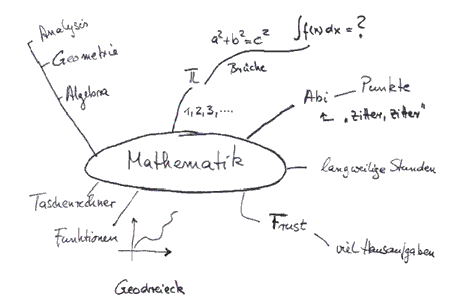 Analysis
Geometrie
Algebra
π
a²+b²=c²
∫f(x)dx = ?
Brüche
1, 2, 3, ....
Abi
Punkte
"Zitter, Zitter"
Mathematik
langweilige Stunden
Taschenrechner
Funktionen
Frust
viel Hausaufgaben
Geodreieck